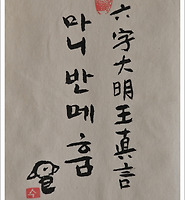 六字大明王真言
마니반메훔
수